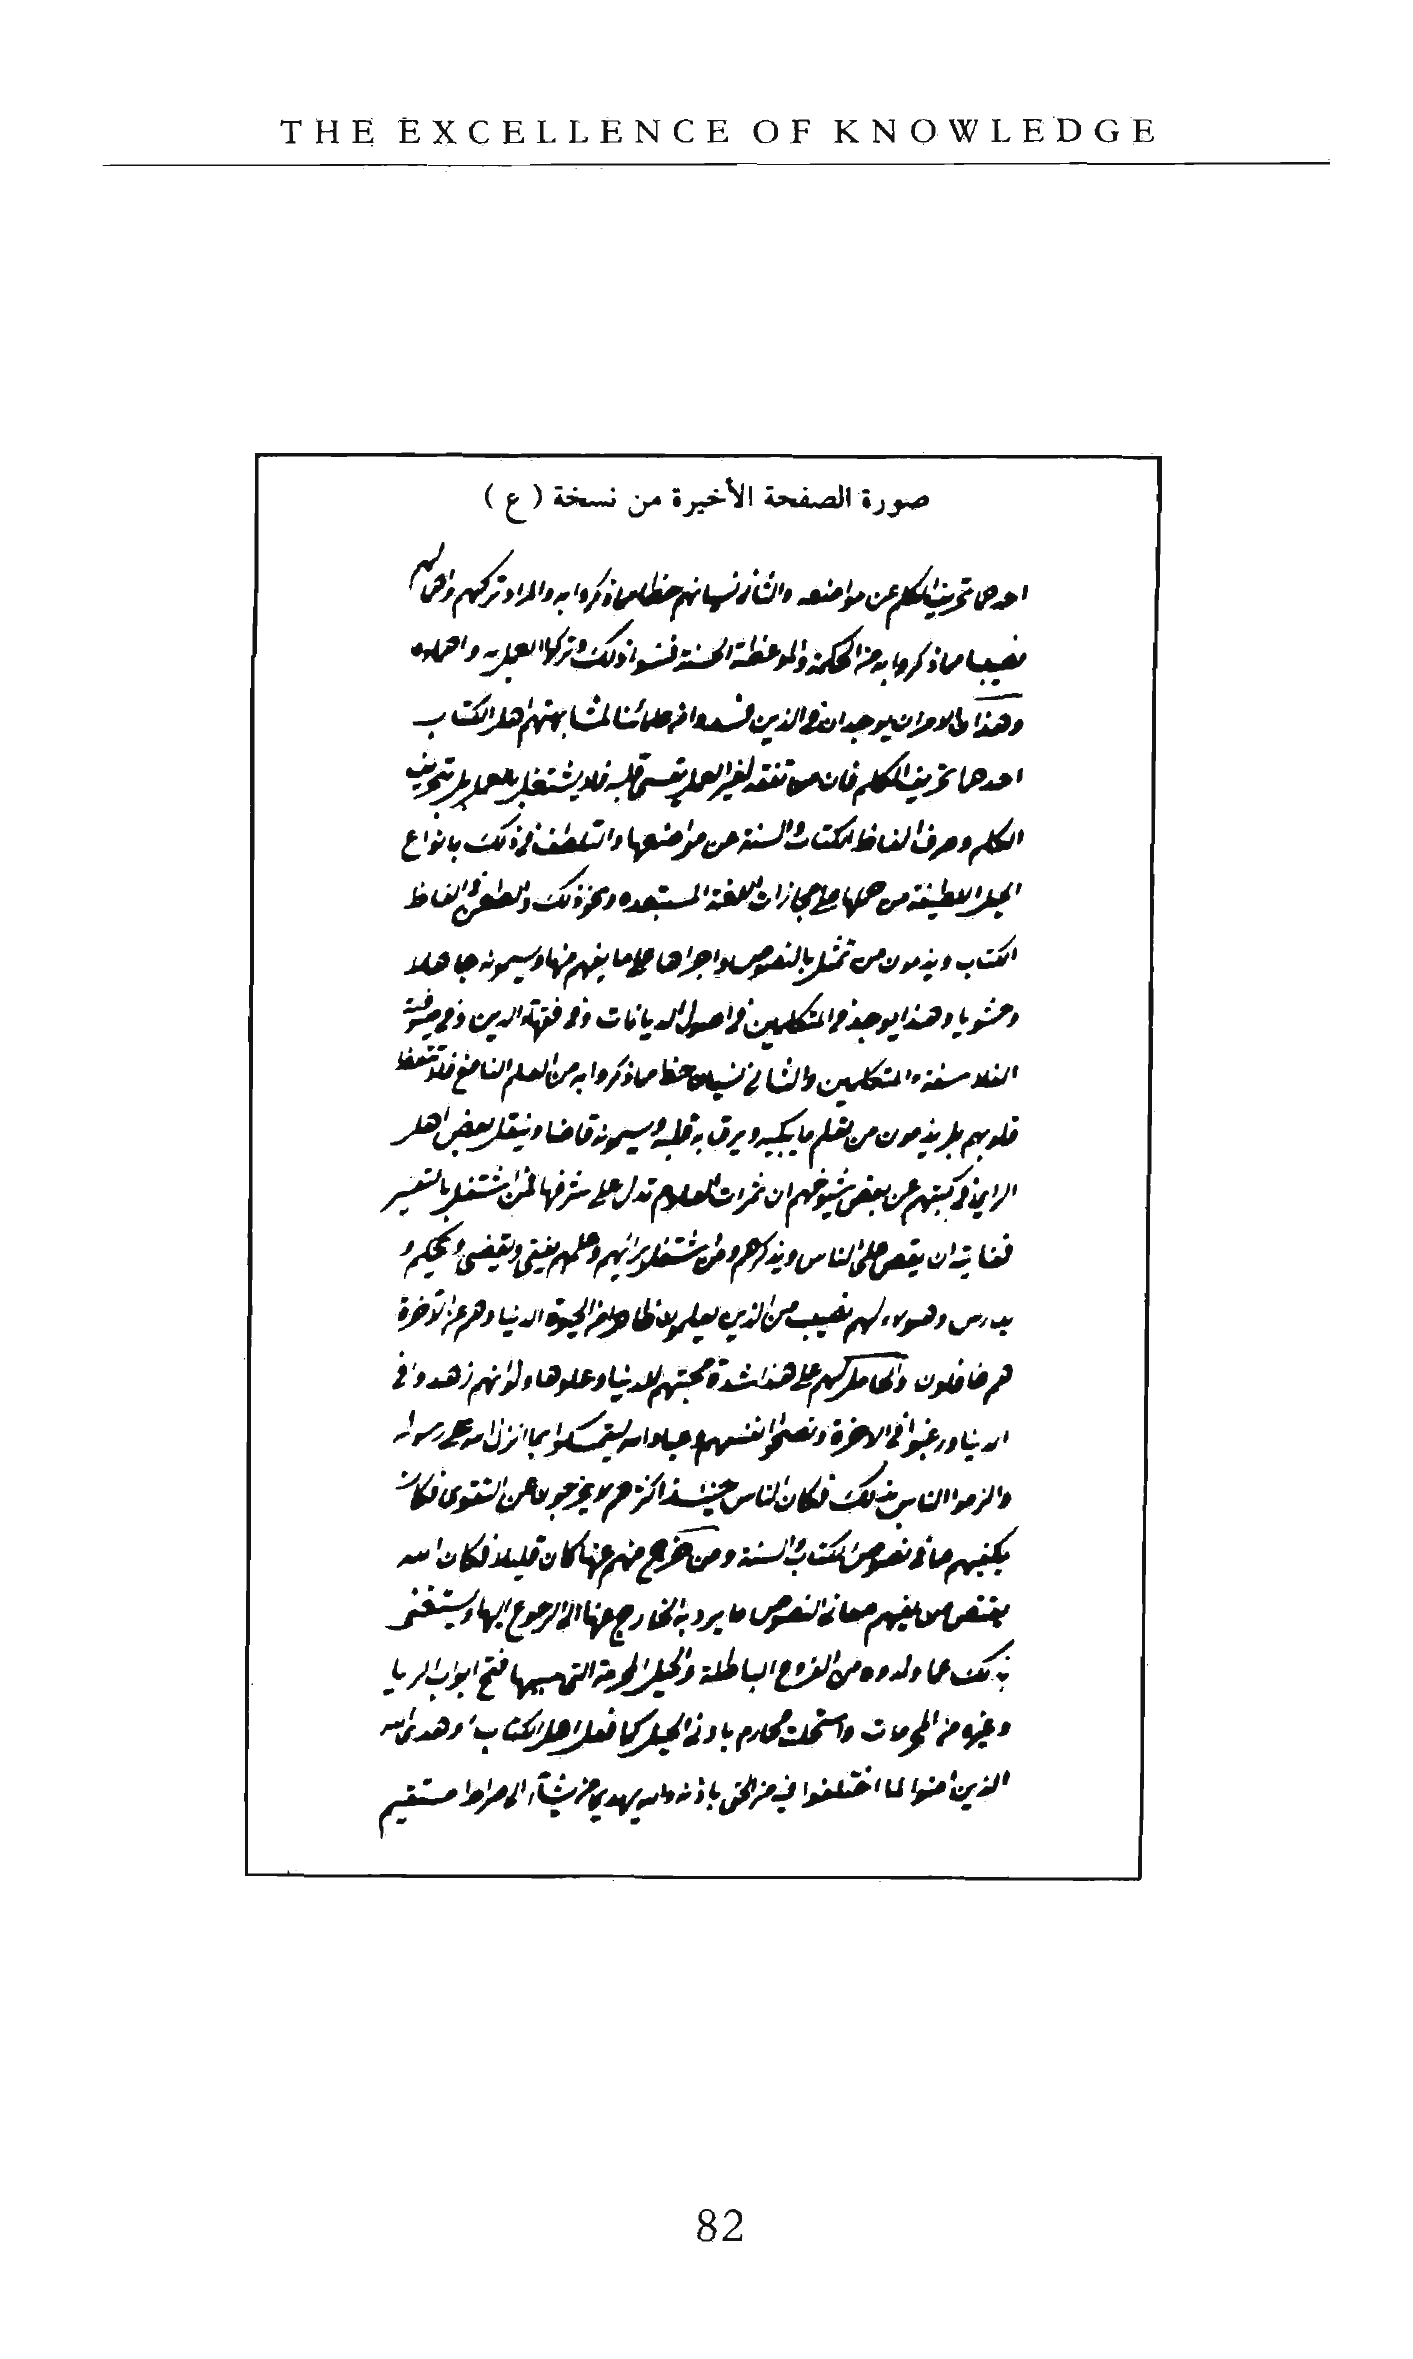 THE EXCELLENCE OF KNOWLEDGE
صورة الصفحة الأخيرة من نسخة ( ع )
احدها تحريف الكلم عن مواضعه والثاني نسيانهم حظا مما ذكروا به والمراد تركهم واهمالهم
نصيبا مما ذكروا به من الحكمة والموعظة الحسنة فنسوا ذلك وتركوا العمل به واهملوه
وهذا الامران يوجدان في الذين فسدوا من علمائنا لمشابهتهم اهل الكتاب
احدها تحريف الكلم فان من تفقه لغير العمل يقسى قلبه فلا يشتغل بالعمل بل بتحريف
الكلم وصرف الفاظ الكتاب والسنة عن مواضعها والتلطف في ذلك بانواع
الحيل اللطيفة من حملها على مجازات اللغة المستبعده ونحو ذلك والطعن في الفاظ
الكتاب ويذمون من تمثل بالنصوص واجراها على ما يفهم منها ويسمونه جاهلا
وحشويا وهذا يوجد في المتكلمين في اصول الديانات وفي فقهاء الدين وفي صوفية
الفلاسفة والمتكلمين والثاني نسيان حظ مما ذكروا به من العلم النافع فلا تتعظ
قلوبهم بل يذمون من تعلم ما يبكيه ويرق به قلبه ويسمونه قاصا وينقل بعض اهل
الراي في كتبهم عن بعض شيوخهم ان ثمرات العلوم تدل على شرفها فمن اشتغل بالتفسير
فغايته ان يقص على الناس ويذكرهم ومن اشتغل برأيهم وعلمهم يفتي ويقضي ويحكم و
يدرس وهولاء لهم نصيب من الذين يعلمون ظاهرا من الحيوة الدنيا وهم عن الآخرة
هم غافلون والحامل لهم على هذا شدة محبتهم للدنيا وعلوها ولو انهم زهدوا في
الدنيا ورغبوا في الاخرة ونصحوا انفسهم وعباد الله لتمسكوا بما انزل الله على رسوله
والزموا الناس بذلك فكان الناس حينئذ اكثرهم لا يخرجون عن التقوى فكان
يكفيهم ما في نصوص الكتاب والسنة ومن خرج منهم عنها كان قليلا فكان الله
يقيض من يفهم معاني النصوص ما يرد به الخارج عنها الى الرجوع اليها ويستغنى
بذلك عما ولدوه من الفروع الباطلة والحيل المحرمة التي بسببها فتح ابواب الربا
وغيره من المحرمات واستحلت محارم بادنى الحيل كما فعل اهل الكتاب وهدى الله
الذين امنوا لما اختلفوا فيه من الحق باذنه والله يهدي من يشآء الى صراط مستقيم
82